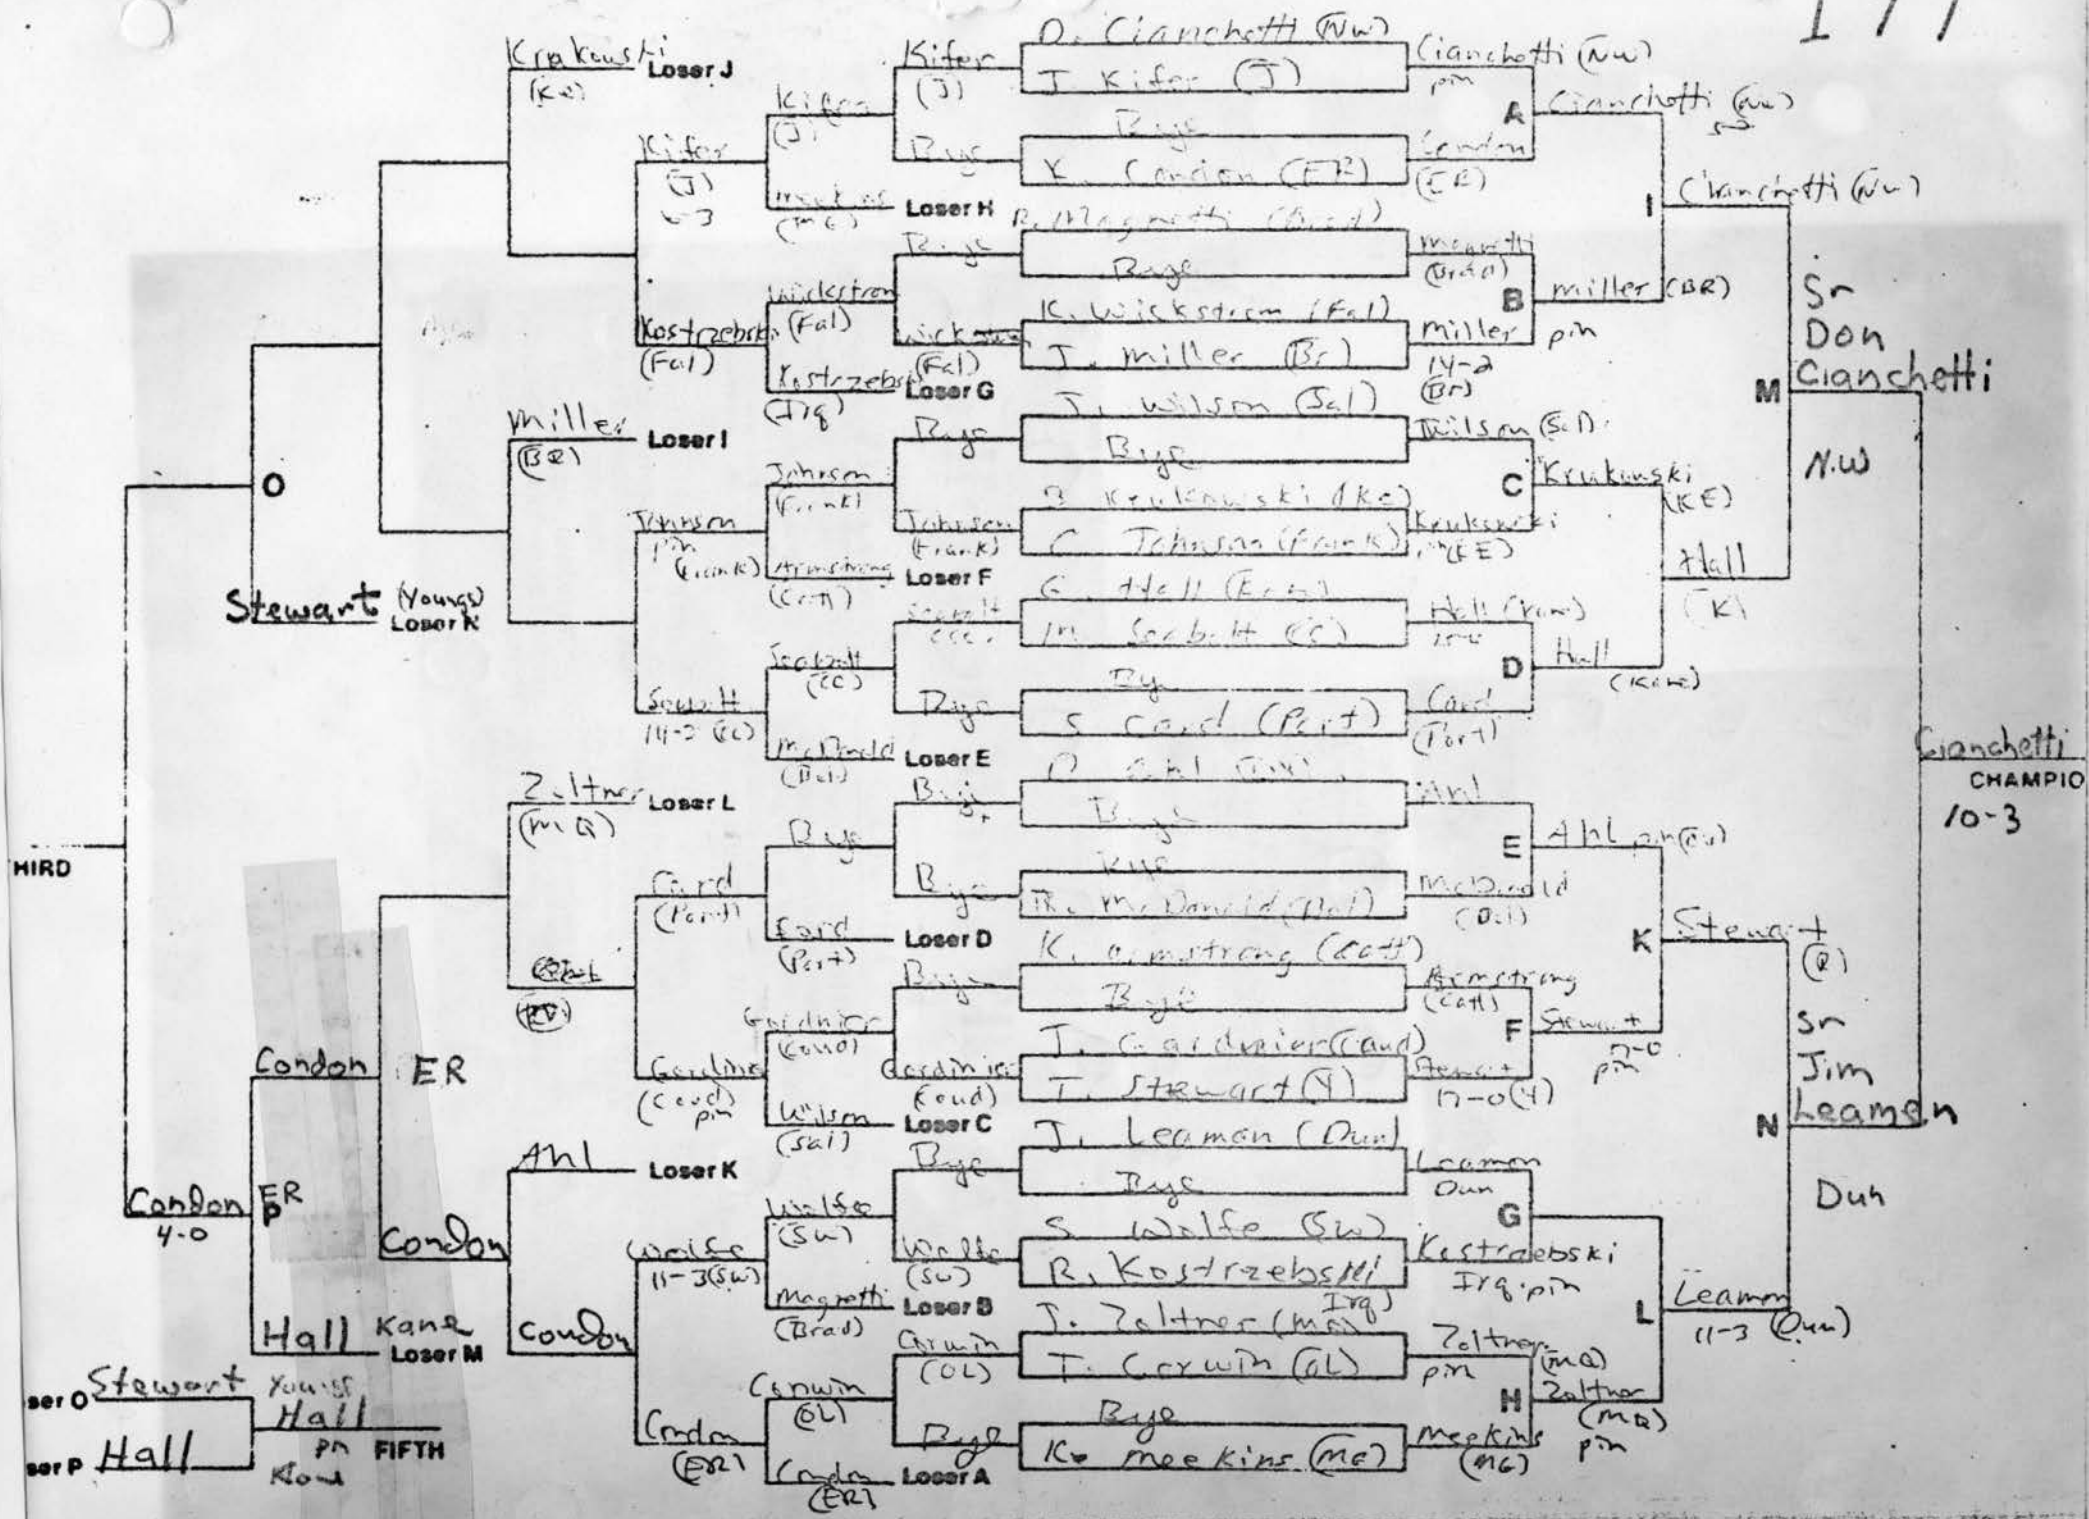 177
D. Cianchetti (NW)
J. Kifer (J)
Bye
K. Condon (ER)
R. Magnetti (Brad)
Bye
K. Wickstrom (Fal)
J. Miller (Br)
J. Wilson (Sal)
Bye
B Krukowski (Ke)
C. Johnson (Frank)
G. Hall (Kane)
M. Seabolt (CC)
By
S Card (Port)
Bye
Bye
R. McDonald (Dal)
K. Armstrong (Catt)
Bye
J. Gardinier (Coud)
T. Stewart (Y)
J. Leamon (Dun)
Bye
S. Wolfe (SW)
R. Kostrzebski
Irq)
J. Zoltner (MQ)
T. Corwin (OL)
Bye
K. Meekins (MG)
Cianchetti (NW)
pin
Condon
(ER)
Magnetti
(Brad)
Miller
14-2
(Br)
Wilson (Sal)
Krukowski
(KE)
Hall (Kane)
Card
(Port)
Ahl
McDonald
(Dal)
Armstrong
(Catt)
Stewart
17-0 (Y)
Leamon
Dun
Kostrzebski
Irq. pin
Zoltner
(MQ)
pin
Meekins
(MG)
A
Cianchetti (NW)
B
Miller (BR)
pin
C
Krukowski
(KE)
D
Hall
(Kane)
E
Ahl pin
F
Stewart
17-0
pin
G
H
Zoltner
(MQ)
pin
I
Cianchetti (NW)
Hall
(K)
K
Stewart
L
Leamon
11-3 (Dun)
M
Sr
Don
Cianchetti
N.W
N
Sr
Jim
Leamon
Dun
Cianchetti
CHAMPIO
10-3
Kifer
(J)
Bye
Bye
Wickstrom
(Fal)
Bye
Johnson
(Frank)
Seabolt
(CC)
Bye
Bye
Bye
Bye
Gardinier
(Coud)
Bye
Wolfe
(SW)
Corwin
(OL)
Bye
Kifer
(J)
Meekins
(MG)
Loser H
Wickstrom
(Fal)
Kostrzebski
(Irq)
Loser G
Johnson
(Frank)
Armstrong
(Catt)
Loser F
Seabolt
(CC)
McDonald
(Dal)
Loser E
Bye
Card
(Port)
Loser D
Gardinier
(Coud)
Wilson
(Sal)
Loser C
Wolfe
(SW)
Magnetti
(Brad)
Loser B
Corwin
(OL)
Condon
(ER)
Loser A
Kifer
(J)
Kostrzebski
(Fal)
Johnson
pin
(Frank)
Seabolt
14-2 (CC)
Card
(Port)
Gardinier
(Coud)
pin
Wolfe
11-3 (SW)
Condon
(ER)
Krukowski
(KE)
Loser J
Miller
(BR)
Loser I
Zoltner
(MQ)
Loser L
Ahl
Loser K
Condon
Condon
O
Stewart (Youngs)
Loser K
Condon
ER
Hall
Kane
Loser M
P
ER
Condon
4-0
HIRD
ser O
Stewart
Youngs
ser P
Hall
Hall
pin
FIFTH
Kane